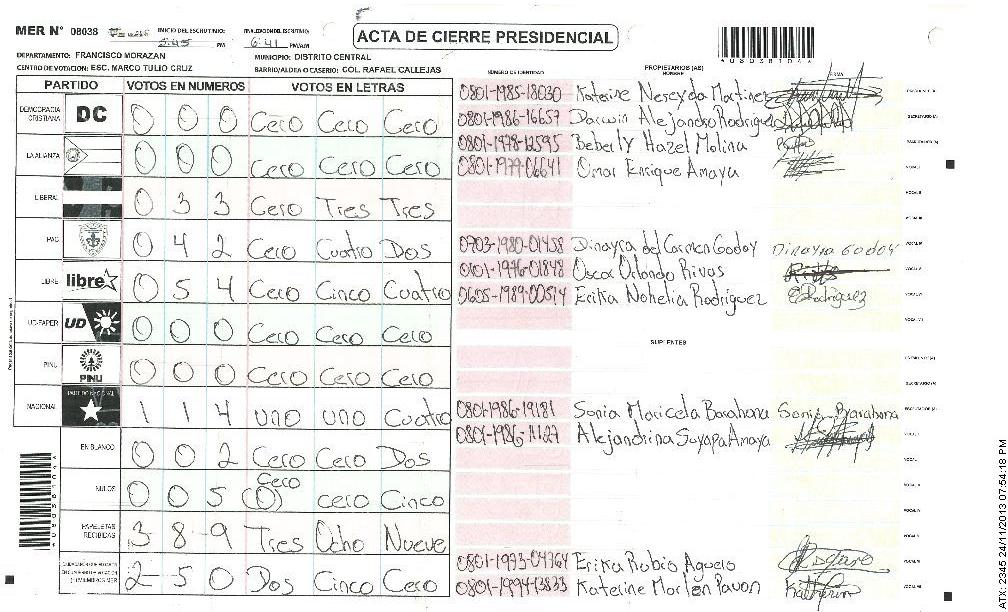 MER N° 08038
INICIO DEL ESCRUTINIO: 5:45 PM
FINALIZACION DEL ESCRUTINIO: 6:41 PM/AM
ACTA DE CIERRE PRESIDENCIAL
DEPARTAMENTO: FRANCISCO MORAZAN
MUNICIPIO: DISTRITO CENTRAL
CENTRO DE VOTACION: ESC. MARCO TULIO CRUZ
BARRIO/ALDEA O CASERIO: COL. RAFAEL CALLEJAS
PARTIDO VOTOS EN NUMEROS VOTOS EN LETRAS
DEMOCRACIA CRISTIANA DC 0 0 0 Cero Cero Cero
LA ALIANZA 0 0 0 Cero Cero Cero
LIBERAL 0 3 3 Cero Tres Tres
PAC 0 4 2 Cero Cuatro Dos
LIBRE libre 0 5 4 Cero Cinco Cuatro
UD-FAPER UD 0 0 0 Cero Cero Cero
PINU PINU 0 0 0 Cero Cero Cero
NACIONAL PARTIDO NACIONAL 1 1 4 uno uno Cuatro
EN BLANCO 0 0 2 Cero Cero Dos
NULOS 0 0 5 Cero (0) cero Cinco
PAPELETAS RECIBIDAS 3 8 9 Tres Ocho Nueve
2 5 0 Dos Cinco Cero
NUMERO DE IDENTIDAD
PROPIETARIOS (AS)
NOMBRE
FIRMA
0801-1985-18030 Katerine Nereyda Martinez
0801-1986-16657 Darwin Alejandro Rodriguez
SECRETARIO (A)
0801-1978-12595 Beberly Hazel Molina
ESCRUTADOR (A)
0801-1979-06641 Omar Enrique Amaya
VOCAL I
VOCAL II
VOCAL III
0703-1980-01458 Dinayra del Carmen Godoy Dinayra Godoy
VOCAL IV
0101-1976-01848 Oscar Orlando Rivas
VOCAL V
0605-1989-00514 Erika Nohelia Rodriguez E Rodriguez
VOCAL VI
VOCAL VII
SUPLENTES
SECRETARIO (A)
0801-1986-19181 Sonia Maricela Barahona Sonia Barahona
ESCRUTADOR (A)
0801-1986-11127 Alejandrina Suyapa Amaya
0801-1973-04764 Erika Rubio Aguero
0801-1994-13833 Katherine Marlen Pavon Katherin
A08038104
ATX: 2345 24/11/2013 07:54:18 PM